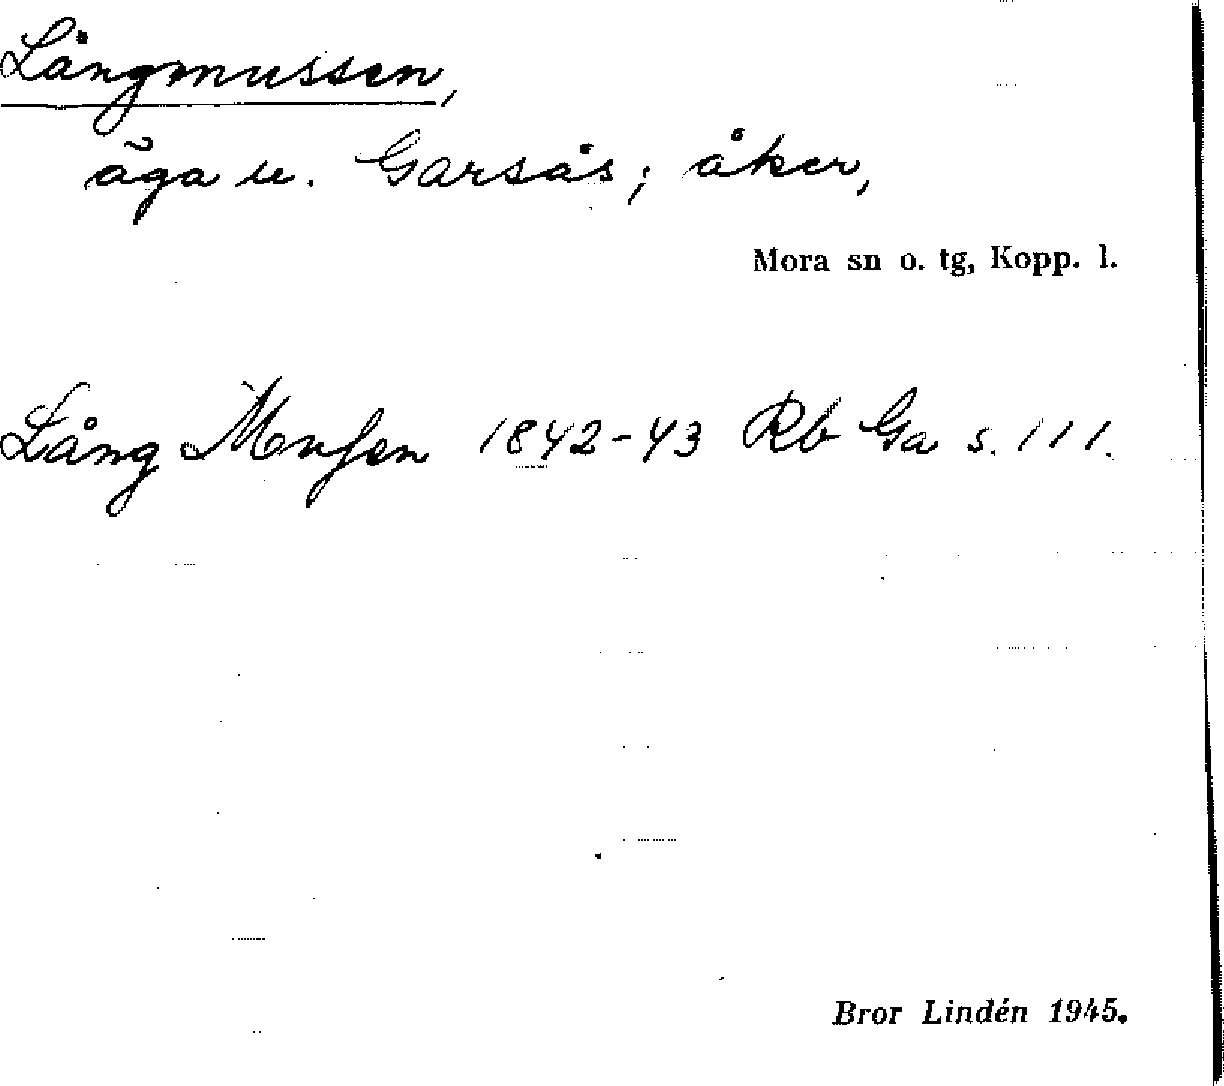 Långmussen,
äga u. Garsås; åker,
Mora sn o. tg, Kopp. l.
Lång Musen 1842-43 Rb Ga s. 111.
Bror Lindén 1945.